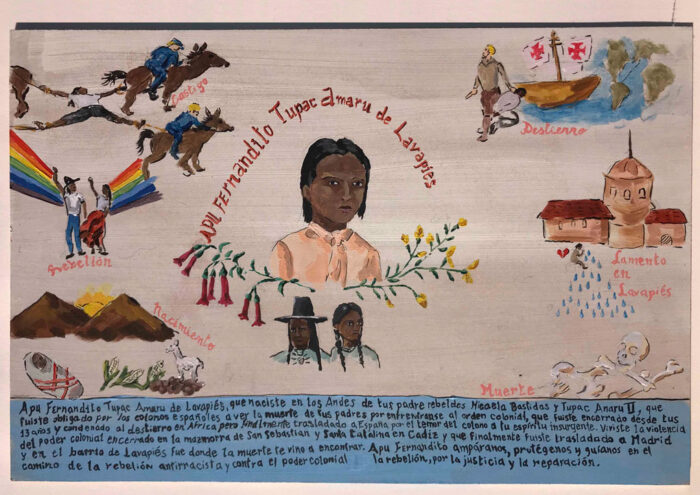 Castigo
Apu Fernandito Tupac Amaru de Lavapiés
Destierro
Rebelión
Lamento
en
Lavapiés
Nacimiento
Muerte
Apu Fernandito Tupac Amaru de Lavapiés, que naciste en los Andes de tus padre rebeldes Micaela Bastidas y Tupac Amaru II, que
fuiste obligado por los colonos españoles a ver la muerte de tus padres por enfrentranse al orden colonial, que fuiste encerrado desde tus
13 años y condenado al destierro en Africa pero finalmente trasladado a España por el temor del colono a tu espíritu insurgente. Viviste la violencia
del poder colonial encerrado en la mazmorra de San Sebastian y Santa Catalina en Cadiz y que finalmente fuiste trasladado a Madrid
y en el barrio de Lavapiés fue donde la muerte te vino a encontrar. Apu Fernandito ampáranos, protégenos y guíanos en el
camino de la rebelión antirracista y contra el poder colonial la rebelión, por la justicia y la reparación.